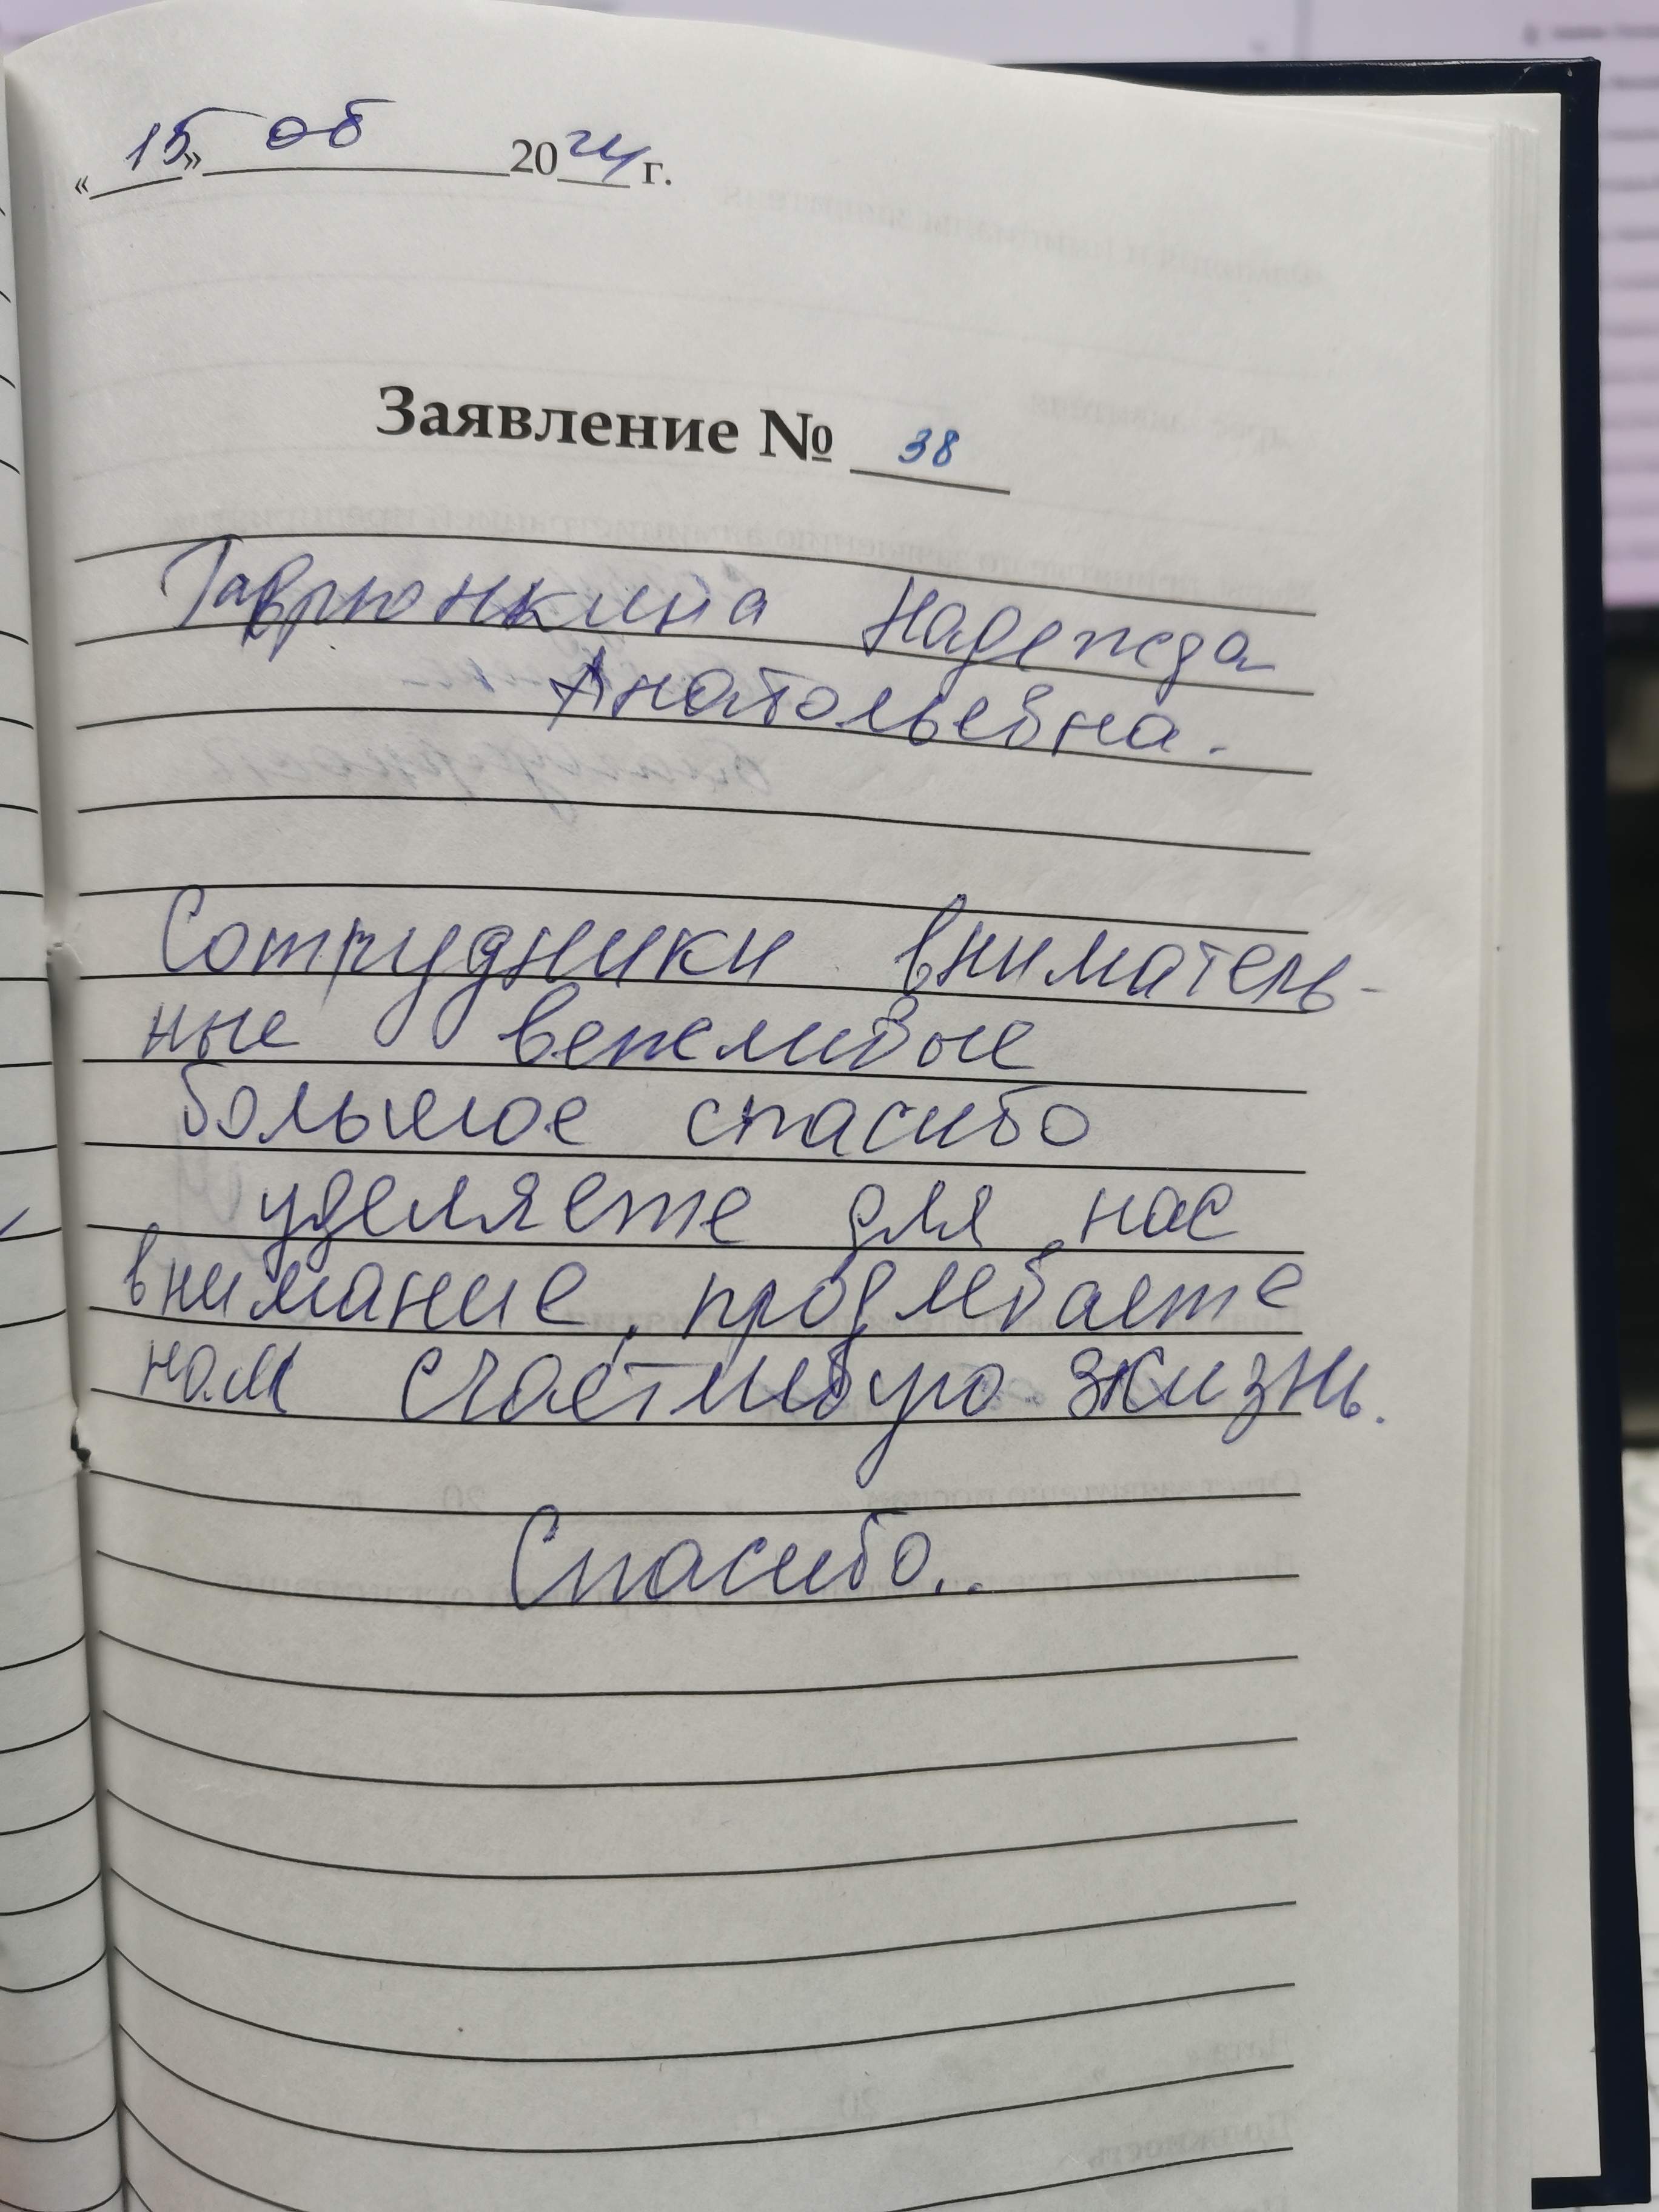 « 15 » 06 2024 г.
Заявление № 38
Гаврюнкина Надежда
Анатольевна.
Сотрудники вниматель-
ные вежливые
большое спасибо
уделяете для нас
внимание, продлеваете
нам счастливую жизнь.
Спасибо..